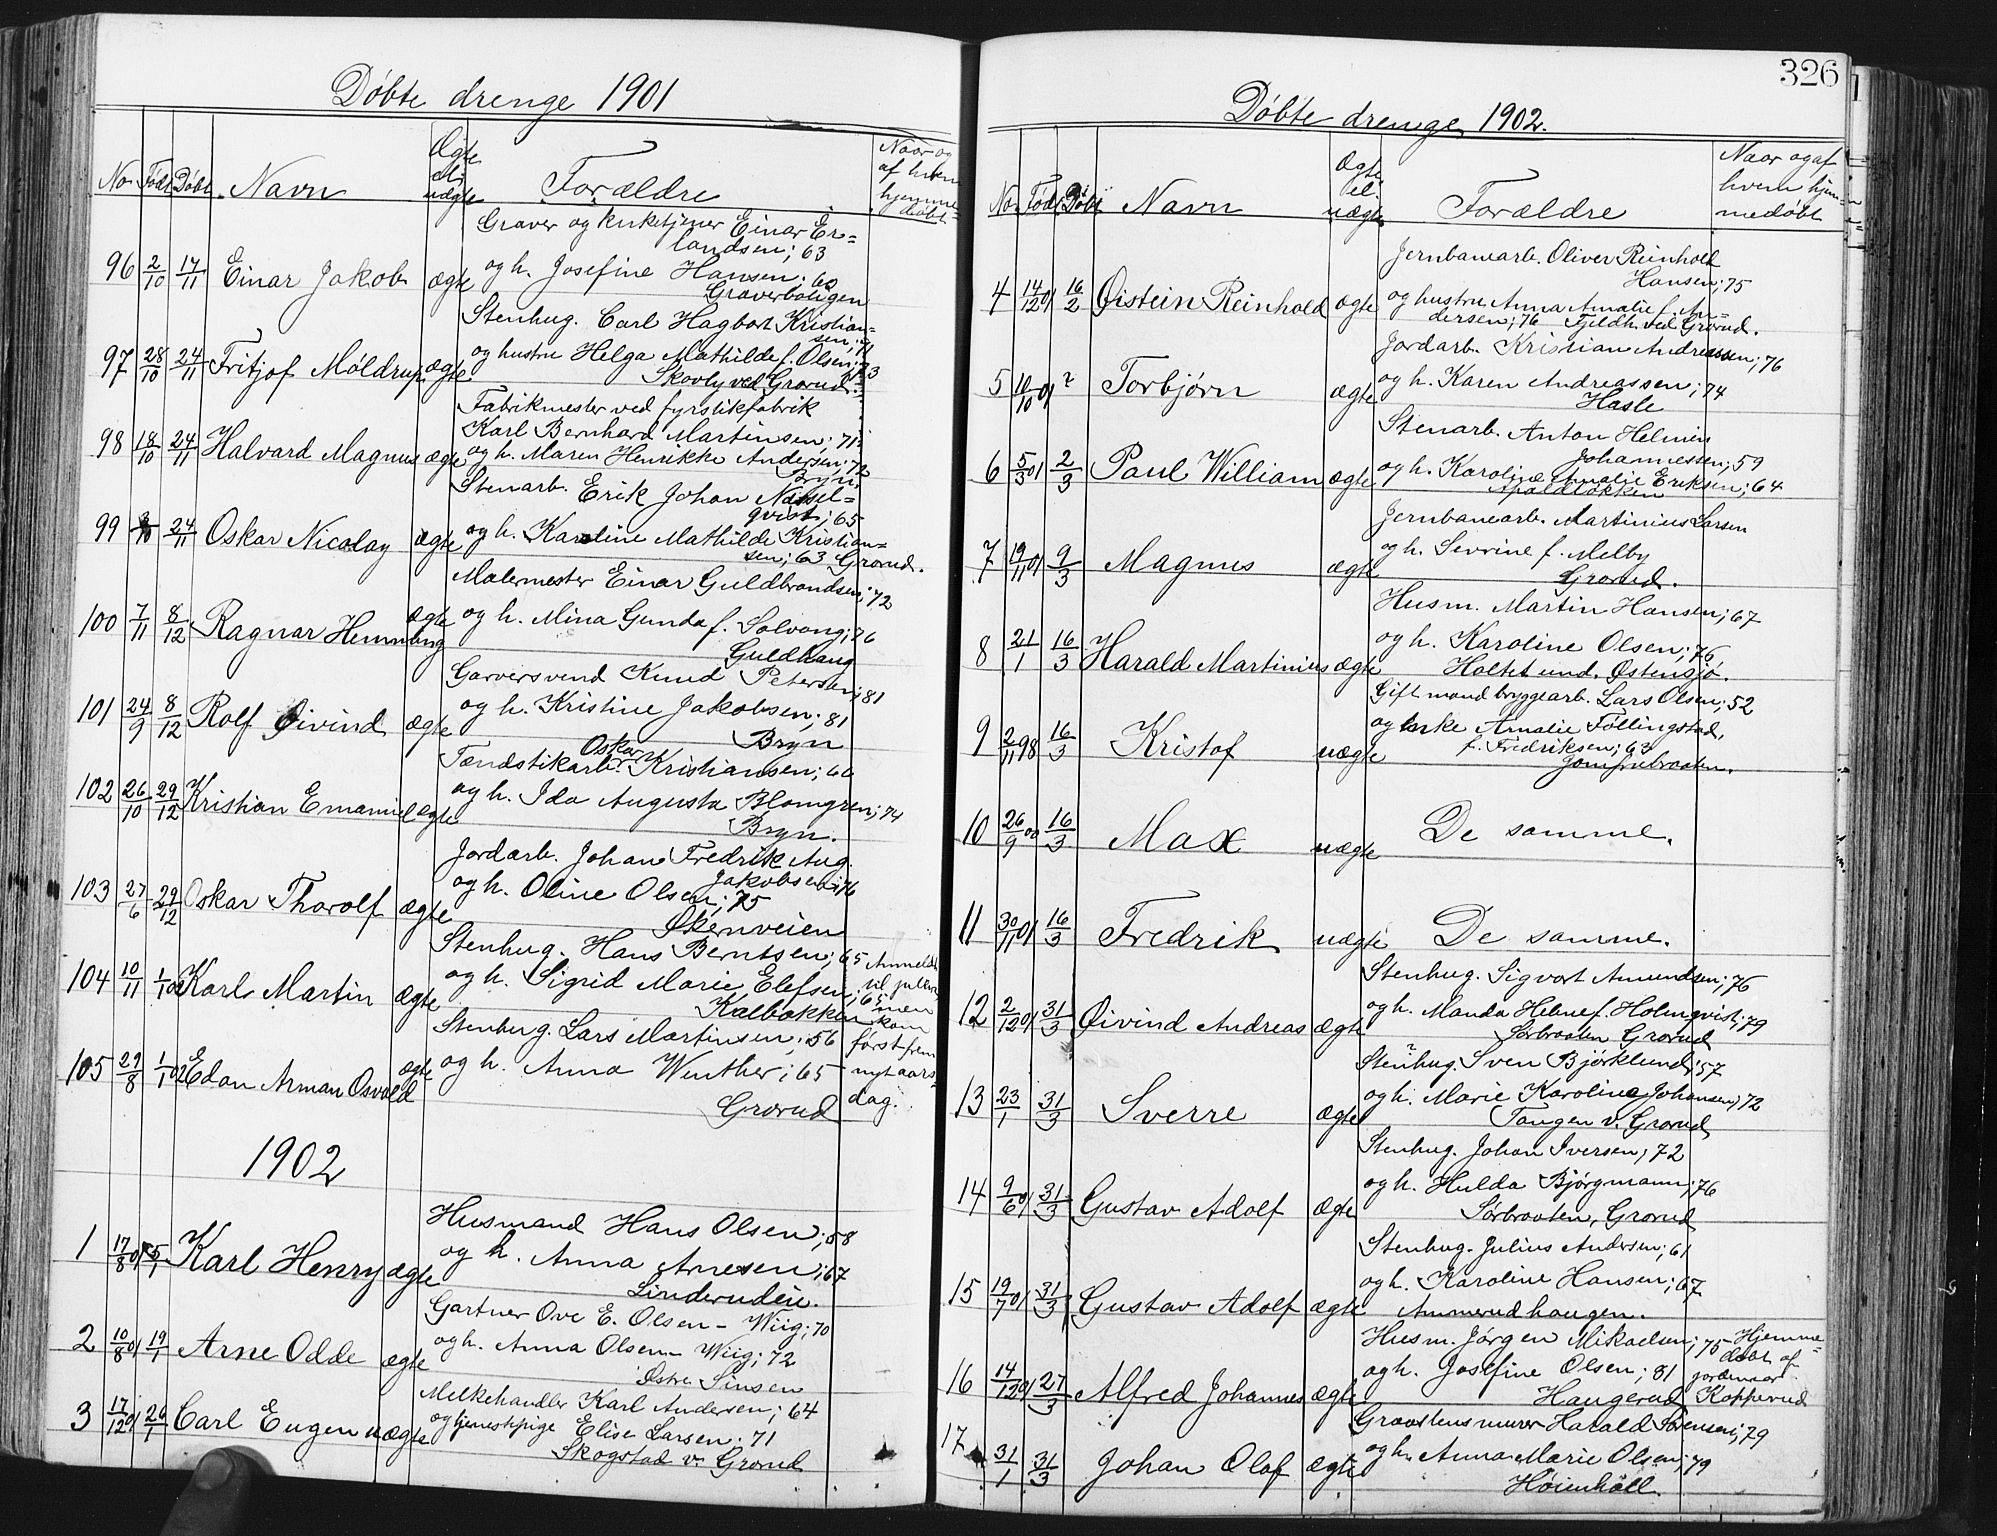 Døbte drenge 1901
No. Født Døbt. Navn Ægte el. uægte Forældre Naar og af hvem hjemmedøbt.
Graver og kirketjener Einar Er=
landsen; 63
96 2/10 17/11 Einar Jakob ægte og h. Josefine Hansen; 60
Graverboligen
Stenhug. Carl Hagbart Kristian=
sen; 71
97 28/10 24/11 Fritjof Møldrup ægte og hustru Helga Mathilde f. Olsen; 73
Skovly ved Grorud.
Fabrikmester ved fyrstikfabrik
Karl Bernhard Martinsen; 71
98 18/10 24/11 Halvard Magnus ægte og h. Maren Henrikke Andersen; 72
Bryn.
Stenarb. Erik Johan Nassel=
qvist; 65
99 3/10 24/11 Oskar Nicolay ægte og h. Karoline Mathilde Kristian=
sen; 63 Grorud.
Malermester Einar Guldbrandsen; 72
100 7/11 8/12 Ragnar Hemming ægte og h. Mina Gunda f. Solvang; 76
Guldhaug
Garversvend Knud Petersen; 81
101 24/9 8/12 Rolf Øivind ægte og h. Kristine Jakobsen; 81
Bryn
Oskar
Tændstikarb. Kristiansen; 66
102 26/10 29/12 Kristian Emanuel ægte og h. Ida Augusta Blomgren; 74
Bryn.
Jordarb. Johan Fredrik Aug.
Jakobsen; 76
103 27/6 29/12 Oskar Thorolf ægte og h. Oline Olsen; 75
Økernveien
Stenhug. Hans Berntsen; 65 Anmeldt
104 10/11 1/1 02 Karl Martin ægte og h. Sigrid Marie Elefsen; 65 til julen men
Kalbakken kom
Stenhug. Lars Martinsen; 56 først frem
105 29/8 1/1 02 Edan Arman Osvald ægte og h. Anna Winther; 65 nytaars-
Grorud dag.
1902
Husmand Hans Olsen; 58
1 17/8 01 5/1 Karl Henry ægte og h. Anna Arnesen; 67
Linderudeie.
Gartner Ove E. Olsen - Wiig; 70
2 10/8 01 19/1 Arne Odde ægte og h. Anna Olsen - Wiig; 72
Østre Sinsen
Melkehandler Karl Andersen; 64
3 17/12 01 26/1 Carl Eugen uægte og tjenestepige Elise Larsen. 71
Skogstad v. Grorud
326
Døbte drenge 1902.
No. Født Døbt Navn Ægte el. uægte Forældre Naar og af hvem hjemmedøbt
Jernbanearb. Oliver Reinhold
Hansen; 75
4 14/12 01 16/2 Øistein Reinhold ægte og hustru Anna Amalie f. An=
dersen; 76 Fjeldh. ved Grorud.
Jordarb. Kristian Andreassen; 76
5 10/10 01 ? Torbjørn ægte og h. Karen Andreassen; 74
Hasle
Stenarb. Anton Helmin
Johannessen; 59
6 5/3 01 2/3 Paul William ægte og h. Karoline Amalie Eriksen; 64
Apaldløkken
Jernbanearb. Martinius Larsen
7 19/11 01 9/3 Magnus ægte og h. Sevrine f. Melby
Grorud.
Husm. Martin Hansen; 67
8 21/1 16/3 Harald Martinius ægte og h. Karoline Olsen; 76
Holtet und. Østensjø.
Gift mand bryggearb. Lars Olsen; 52
9 2/11 98 16/3 Kristof uægte og enke AmalieFøllingstad,
f. Fredriksen; 63
Jomfrubraaten.
10 26/9 00 16/3 Max uægte De samme.
11 30/11 01 16/3 Fredrik uægte De samme.
Stenhug. Sigvart Amundsen; 76
12 2/12 01 31/3 Øivind Andreas ægte og h. Manda Helene f. Holmqvist; 79
Sørbraaten Grorud
Stenhug. Sven Bjørklund; 57
13 23/1 31/3 Sverre ægte og h. Marie Karoline Johansen; 72
Tangen v. Grorud
Stenhug. Johan Iversen; 72
14 9/6 01 31/3 Gustav Adolf ægte og h. Hulda Bjørgmann; 76
Sørbraaten, Grorud
Stenhug. Julius Andersen; 61
15 19/7 01 31/3 Gustav Adolf ægte og h. Karoline Hansen; 67
Ammerudhaugen.
Husm. Jørgen Mikaelsen; 75 Hjemme=
16 14/12 01 27/3 Alfred Johannes ægte og h. Josefine Olsen; 81 døbt af jordmoor
Haugerud Kopperud
Graastensmurer Harald Sørensen; 79
17 31/1 31/3 Johan Olaf ægte og h. Anna Marie Olsen; 79
Høienhall.